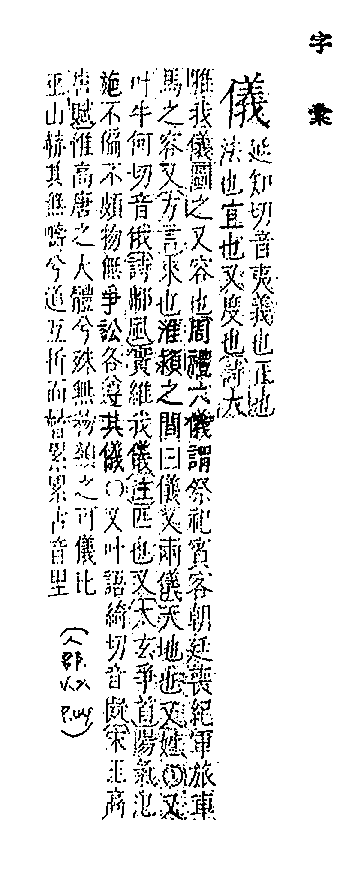 字彙
儀
延知切音夷義也正也
法也宜也又度也詩大
雅我儀圖之又容也周禮六儀謂祭祀賓客朝廷喪紀軍旅車
馬之容又方言來也淮潁之間曰儀又兩儀天地也又姓〇又
叶牛何切音俄詩鄘風實維我儀註匹也又太玄爭首陽氣氾
施不偏不頗物無爭訟各遵其儀〇又叶語綺切音擬宋玉高
唐賦惟高唐之大體兮殊無物類之可儀比
巫山赫其無疇兮道互折而曾累累古音里
(人部